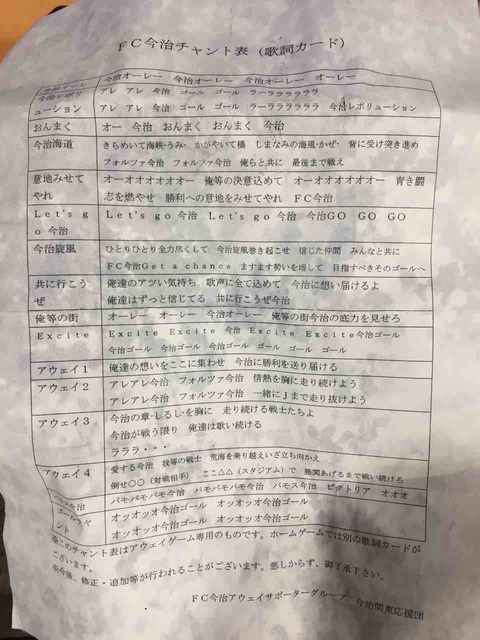 FC今治チャント表（歌詞カード）
今治オーレ 今治オーレー 今治オーレー 今治オーレー オーレー
今治レボリューション アレ アレ 今治 ゴール ゴール ラーララララララ
アレ アレ 今治 ゴール ゴール ラーララララララ 今治レボリューション
おんまく オー 今治 おんまく おんまく 今治
今治海道 きらめいて海峡・うみ・ かがやいて橋 しまなみの海風・かぜ・ 背に受け突き進め
フォルツァ今治 フォルツァ今治 俺らと共に 最後まで戦え
意地みせてやれ オーオオオオオオー 俺等の決意込めて オーオオオオオオー 青き闘
志を燃やせ 勝利への意地をみせてやれ FC今治
Let's go 今治 Let's go 今治 Let's go 今治 今治GO GO GO
今治旋風 ひとりひとり全力尽くして 今治旋風巻き起こせ 信じた仲間 みんなと共に
FC今治Get a chance ますます勢いを増して 目指すべきそのゴールへ
共に行こうぜ 俺達のアツい気持ち 歌声に全て込めて 今治に想い届けるよ
俺達はずっと信じてる 共に行こうぜ今治
俺等の街 オーレー オーレー 今治オーレー 俺等の街今治の底力を見せろ
Excite Excite Excite 今治 Excite Excite今治ゴール
今治ゴール 今治ゴール 今治ゴール ゴール ゴール ゴール
アウェイ1 俺達の想いをここに集わせ 今治に勝利を送り届ける
アウェイ2 アレアレ今治 フォルツァ今治 情熱を胸に走り続けよう
アレアレ今治 フォルツァ今治 一緒にJまで走り抜けよう
アウェイ3 今治の章・しるし・を胸に 走り続ける戦士たちよ
今治が戦う限り 俺達は歌い続ける
ラララ・・・
アウェイ4 愛する今治 我等の戦士 荒海を乗り越えいざ立ち向かえ
倒せ○○（対戦相手） ここ△△（スタジアム）で 勝鬨あげるまで戦い続けろ
バモ今治 バモバモバモ今治 バモバモバモ今治 バモス今治 ビクトリア オオオ
ゴールチャント オッオッオ今治ゴール オッオッオ今治ゴール
オッオッオ今治ゴール オッオッオ今治ゴール
※このチャント表はアウェイゲーム専用のものです。ホームゲームでは別の歌詞カードが
ございます。
※今後、修正・追加等が行われることがございます。悪しからず、御了承下さい。
FC今治アウェイサポーターグループ 今治関東応援団